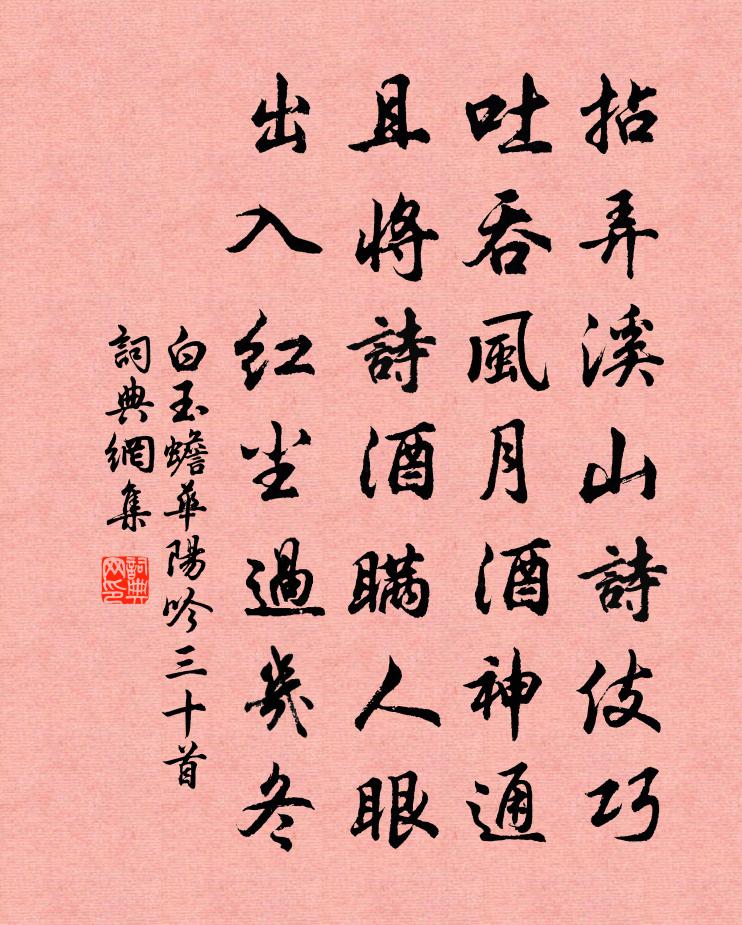 拈弄溪山詩伎巧
吐吞風月酒神通
且將詩酒瞞人眼
出入红尘過幾冬
白玉蟾華陽吟三十首
詞典網集
詞典網印